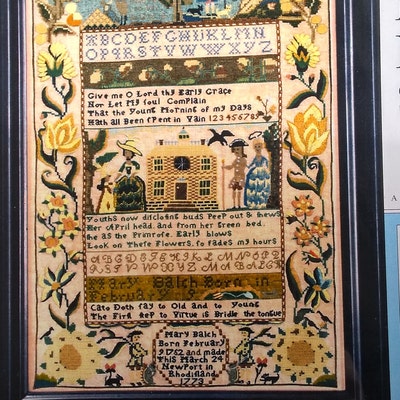 ABCDEFGHIJKLMN
OPQRSTUVWXYZ
Give me O Lord thy Early Grace
Nor Let My soul Complain
That the Young Morning of my Days
Hath all Been Spent in Vain 123456789
Youths now disclosing buds Peep out & shews
Her April head and from her Green bed
She as the Primrose Early blows
Look on These Flowers, so fades my hours
ABCDEFGHIKLMNOPQ
RSTVWXYZ
Balch Born in
Cato Doth say to Old and to Young
The First Step to Virtue is Bridle the tongue
Mary Balch
Born February
9 1762 and made
This March 24
NewPort in
Rhodisland
1773
A